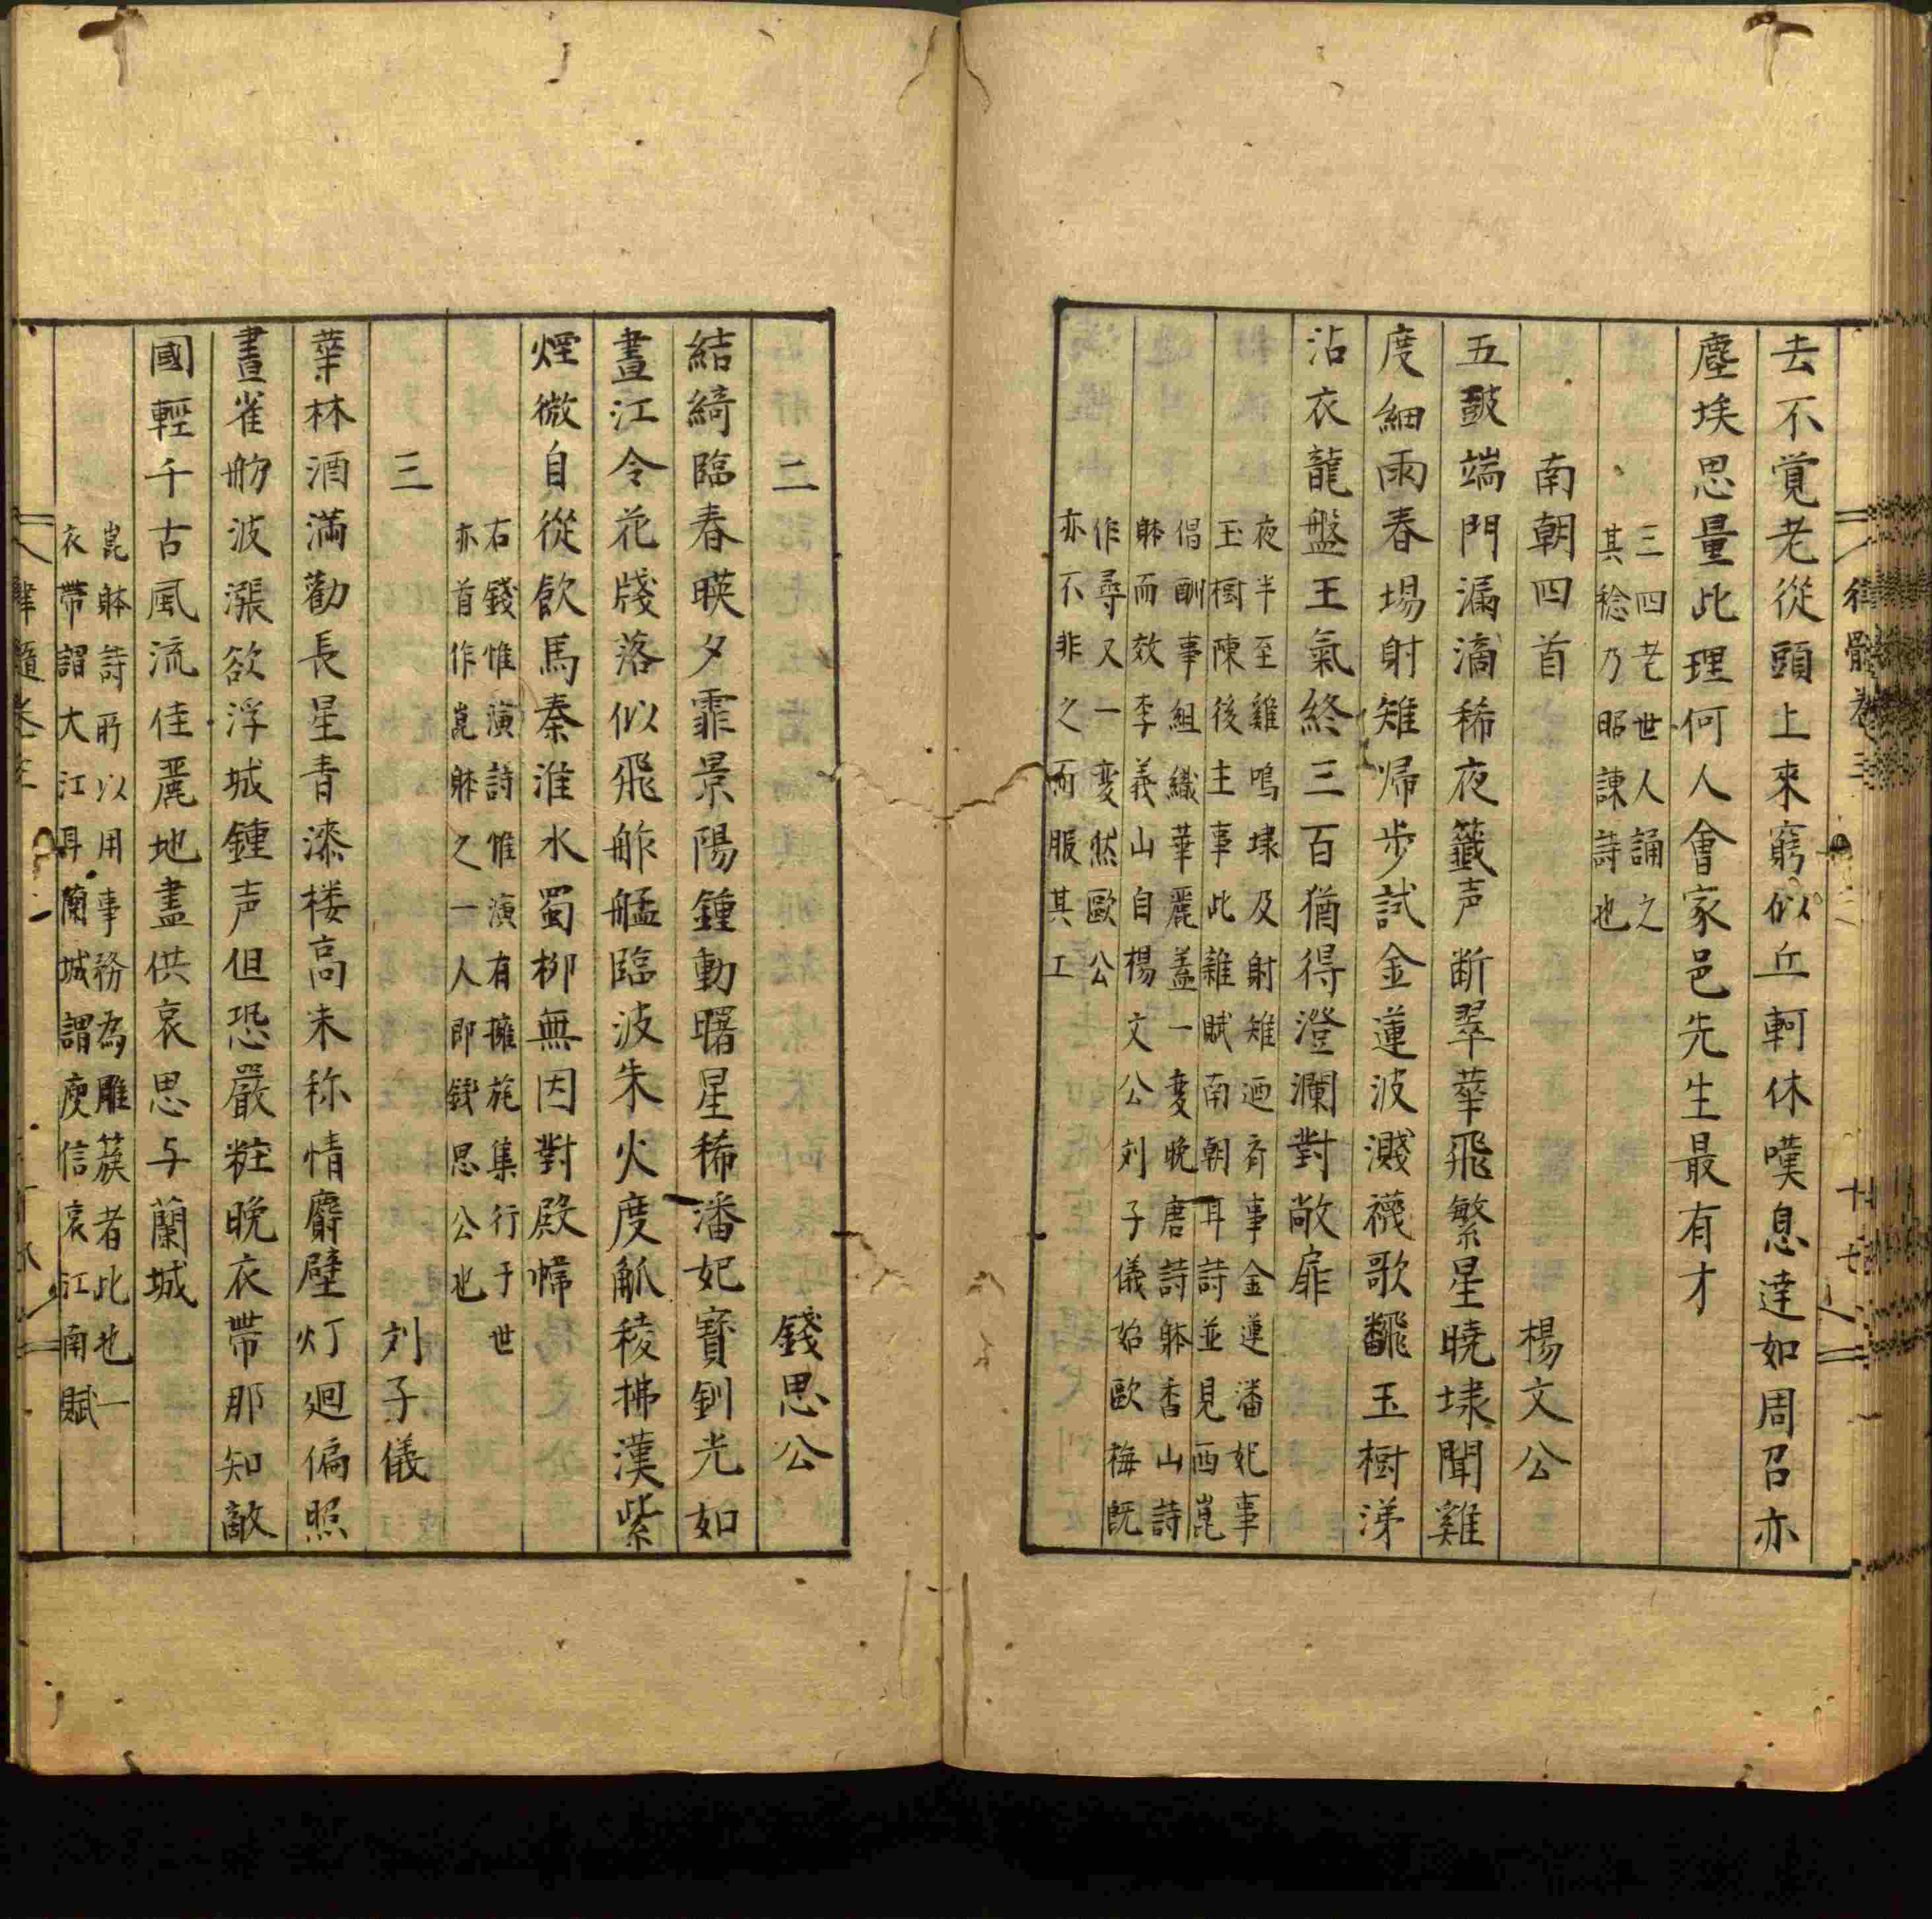 去不覚老從頭上來窮似丘軻休嘆息達如周召亦
塵埃思量此理何人會家邑先生最有才
三四老世人誦之
其稔乃昭諫詩也
南朝四首 楊文公
五鼓端門漏滴稀夜籤声断翠華飛繁星曉埭聞雞
度細雨春場射雉帰歩試金蓮波濺襪歌飜玉樹涕
沾衣龍盤王氣終三百猶得澄瀾對敞扉
夜半至雞鳴埭及射雉迺斉事金蓮潘妃事
玉樹陳後主事此雜賦南朝耳詩並見西崑
倡酬事組織華麗蓋一変晩唐詩躰香山詩
躰而效李義山自楊文公刘子儀始歐梅既
作尋又一変然歐公
亦不非之而服其工
二 錢思公
結綺臨春暎夕霏景陽鍾動曙星稀潘妃寳釧光如
晝江令花牋落似飛舴艋臨波朱火度觚稜拂漢紫
煙微自從飲馬秦淮水蜀柳無因對殿幃
右錢惟演詩惟演有擁旄集行于世
亦首作崑躰之一人即錢思公也
三 刘子儀
華林酒滿勸長星青漆楼高未称情麝壁灯廻偏照
晝雀舫波漲欲浮城鍾声但恐嚴粧晩衣帶那知敵
國輕千古風流佳麗地盡供哀思与蘭城
崑躰詩所以用事務為雕簇者此也一
衣帶謂大江耳蘭城謂庾信哀江南賦